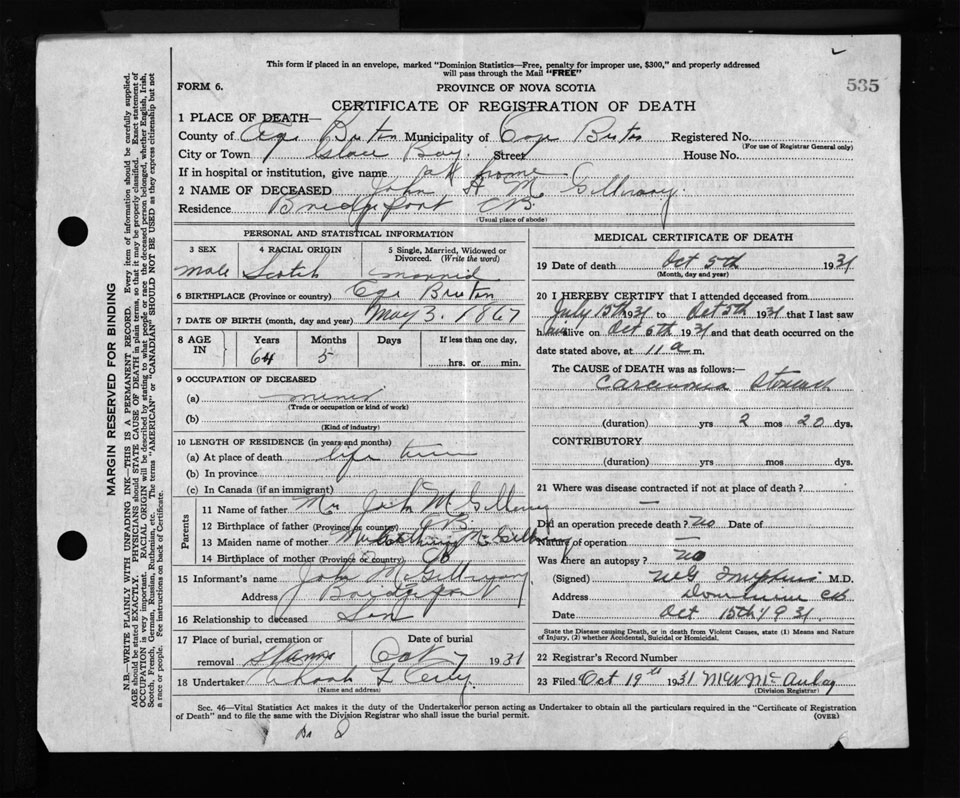 This form if placed in an envelope, marked "Dominion Statistics—Free, penalty for improper use, $300," and properly addressed
will pass through the Mail "FREE"
535
FORM 6.
PROVINCE OF NOVA SCOTIA
CERTIFICATE OF REGISTRATION OF DEATH
1 PLACE OF DEATH—
County of Cape Breton Municipality of Cape Breton Registered No.
(For use of Registrar General only)
City or Town Glace Bay. Street House No.
If in hospital or institution, give name at home
2 NAME OF DECEASED John H Mc Gillivary.
Residence Bridgeport CB.
(Usual place of abode)
PERSONAL AND STATISTICAL INFORMATION
3 SEX 4 RACIAL ORIGIN 5 Single, Married, Widowed or Divorced. (Write the word)
Male Scotch married
6 BIRTHPLACE (Province or country) Cape Breton
7 DATE OF BIRTH (month, day and year) May 3. 1867
8 AGE IN Years Months Days If less than one day,
64 5 hrs. or min.
9 OCCUPATION OF DECEASED
(a) miner
(Trade or occupation or kind of work)
(b)
(Kind of industry)
10 LENGTH OF RESIDENCE (in years and months)
(a) At place of death life time
(b) In province
(c) In Canada (if an immigrant)
Parents
11 Name of father Mr John McGillivary
12 Birthplace of father (Province or country) CB.
13 Maiden name of mother McGillivary
14 Birthplace of mother (Province or country) CB
15 Informant's name John McGillivary
Address Bridgeport
16 Relationship to deceased Son
17 Place of burial, cremation or removal Date of burial
Oct 7 1931
18 Undertaker
(Name and address)
MEDICAL CERTIFICATE OF DEATH
19 Date of death Oct 5th 1931
(Month, day and year)
20 I HEREBY CERTIFY that I attended deceased from
July 15th 1931 to Oct 5th 1931 that I last saw
him alive on Oct 6th 1931 and that death occurred on the
date stated above, at 11 a m.
The CAUSE of DEATH was as follows:—
Carcinoma Stomach
(duration) yrs 2 mos 20 dys.
CONTRIBUTORY
(duration) yrs. mos. dys.
21 Where was disease contracted if not at place of death? —
Did an operation precede death? no Date of
Nature of operation —
Was there an autopsy? no
(Signed) M.D.
Address Dominion CB
Date Oct 15th 1931.
State the Disease causing Death, or in death from Violent Causes, state (1) Means and Nature
of Injury, (2) whether Accidental, Suicidal or Homicidal.
22 Registrar's Record Number
23 Filed Oct 19th 1931 McAulay
(Division Registrar)
Sec. 46—Vital Statistics Act makes it the duty of the Undertaker or person acting as Undertaker to obtain all the particulars required in the "Certificate of Registration
of Death" and to file the same with the Division Registrar who shall issue the burial permit.
(OVER)
MARGIN RESERVED FOR BINDING
N.B.—WRITE PLAINLY WITH UNFADING INK—THIS IS A PERMANENT RECORD. Every item of information should be carefully supplied.
AGE should be stated EXACTLY. PHYSICIANS should STATE CAUSE OF DEATH in plain terms, so that it may be properly classified. Exact statement of
OCCUPATION is very important. RACIAL ORIGIN will be described by stating to what people or race the deceased person belonged, whether English, Irish,
Scotch, French, German, Russian, Ruthenian, etc. The terms "AMERICAN" or "CANADIAN" SHOULD NOT BE USED as they express citizenship but not
a race or people. Fee instructions on back of Certificate.